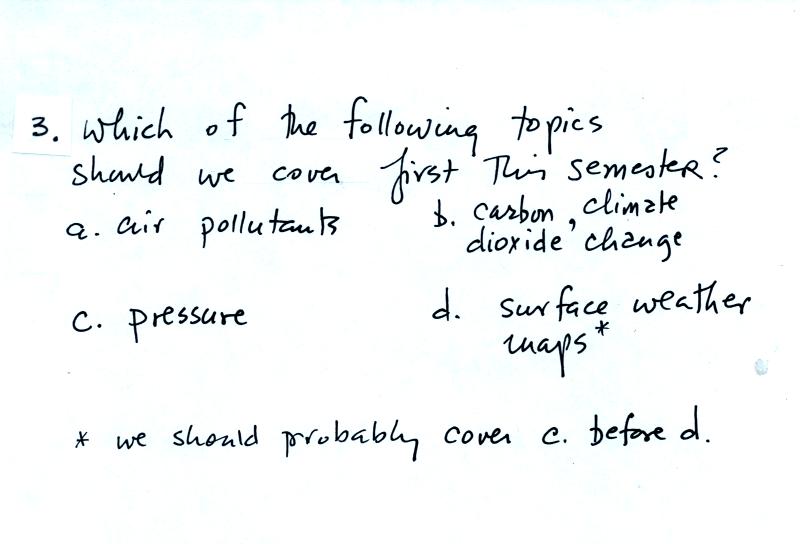 3. Which of the following topics
should we cover first this semester?
a. air pollutants b. carbon dioxide, climate change
c. pressure d. surface weather maps*
* we should probably cover c. before d.